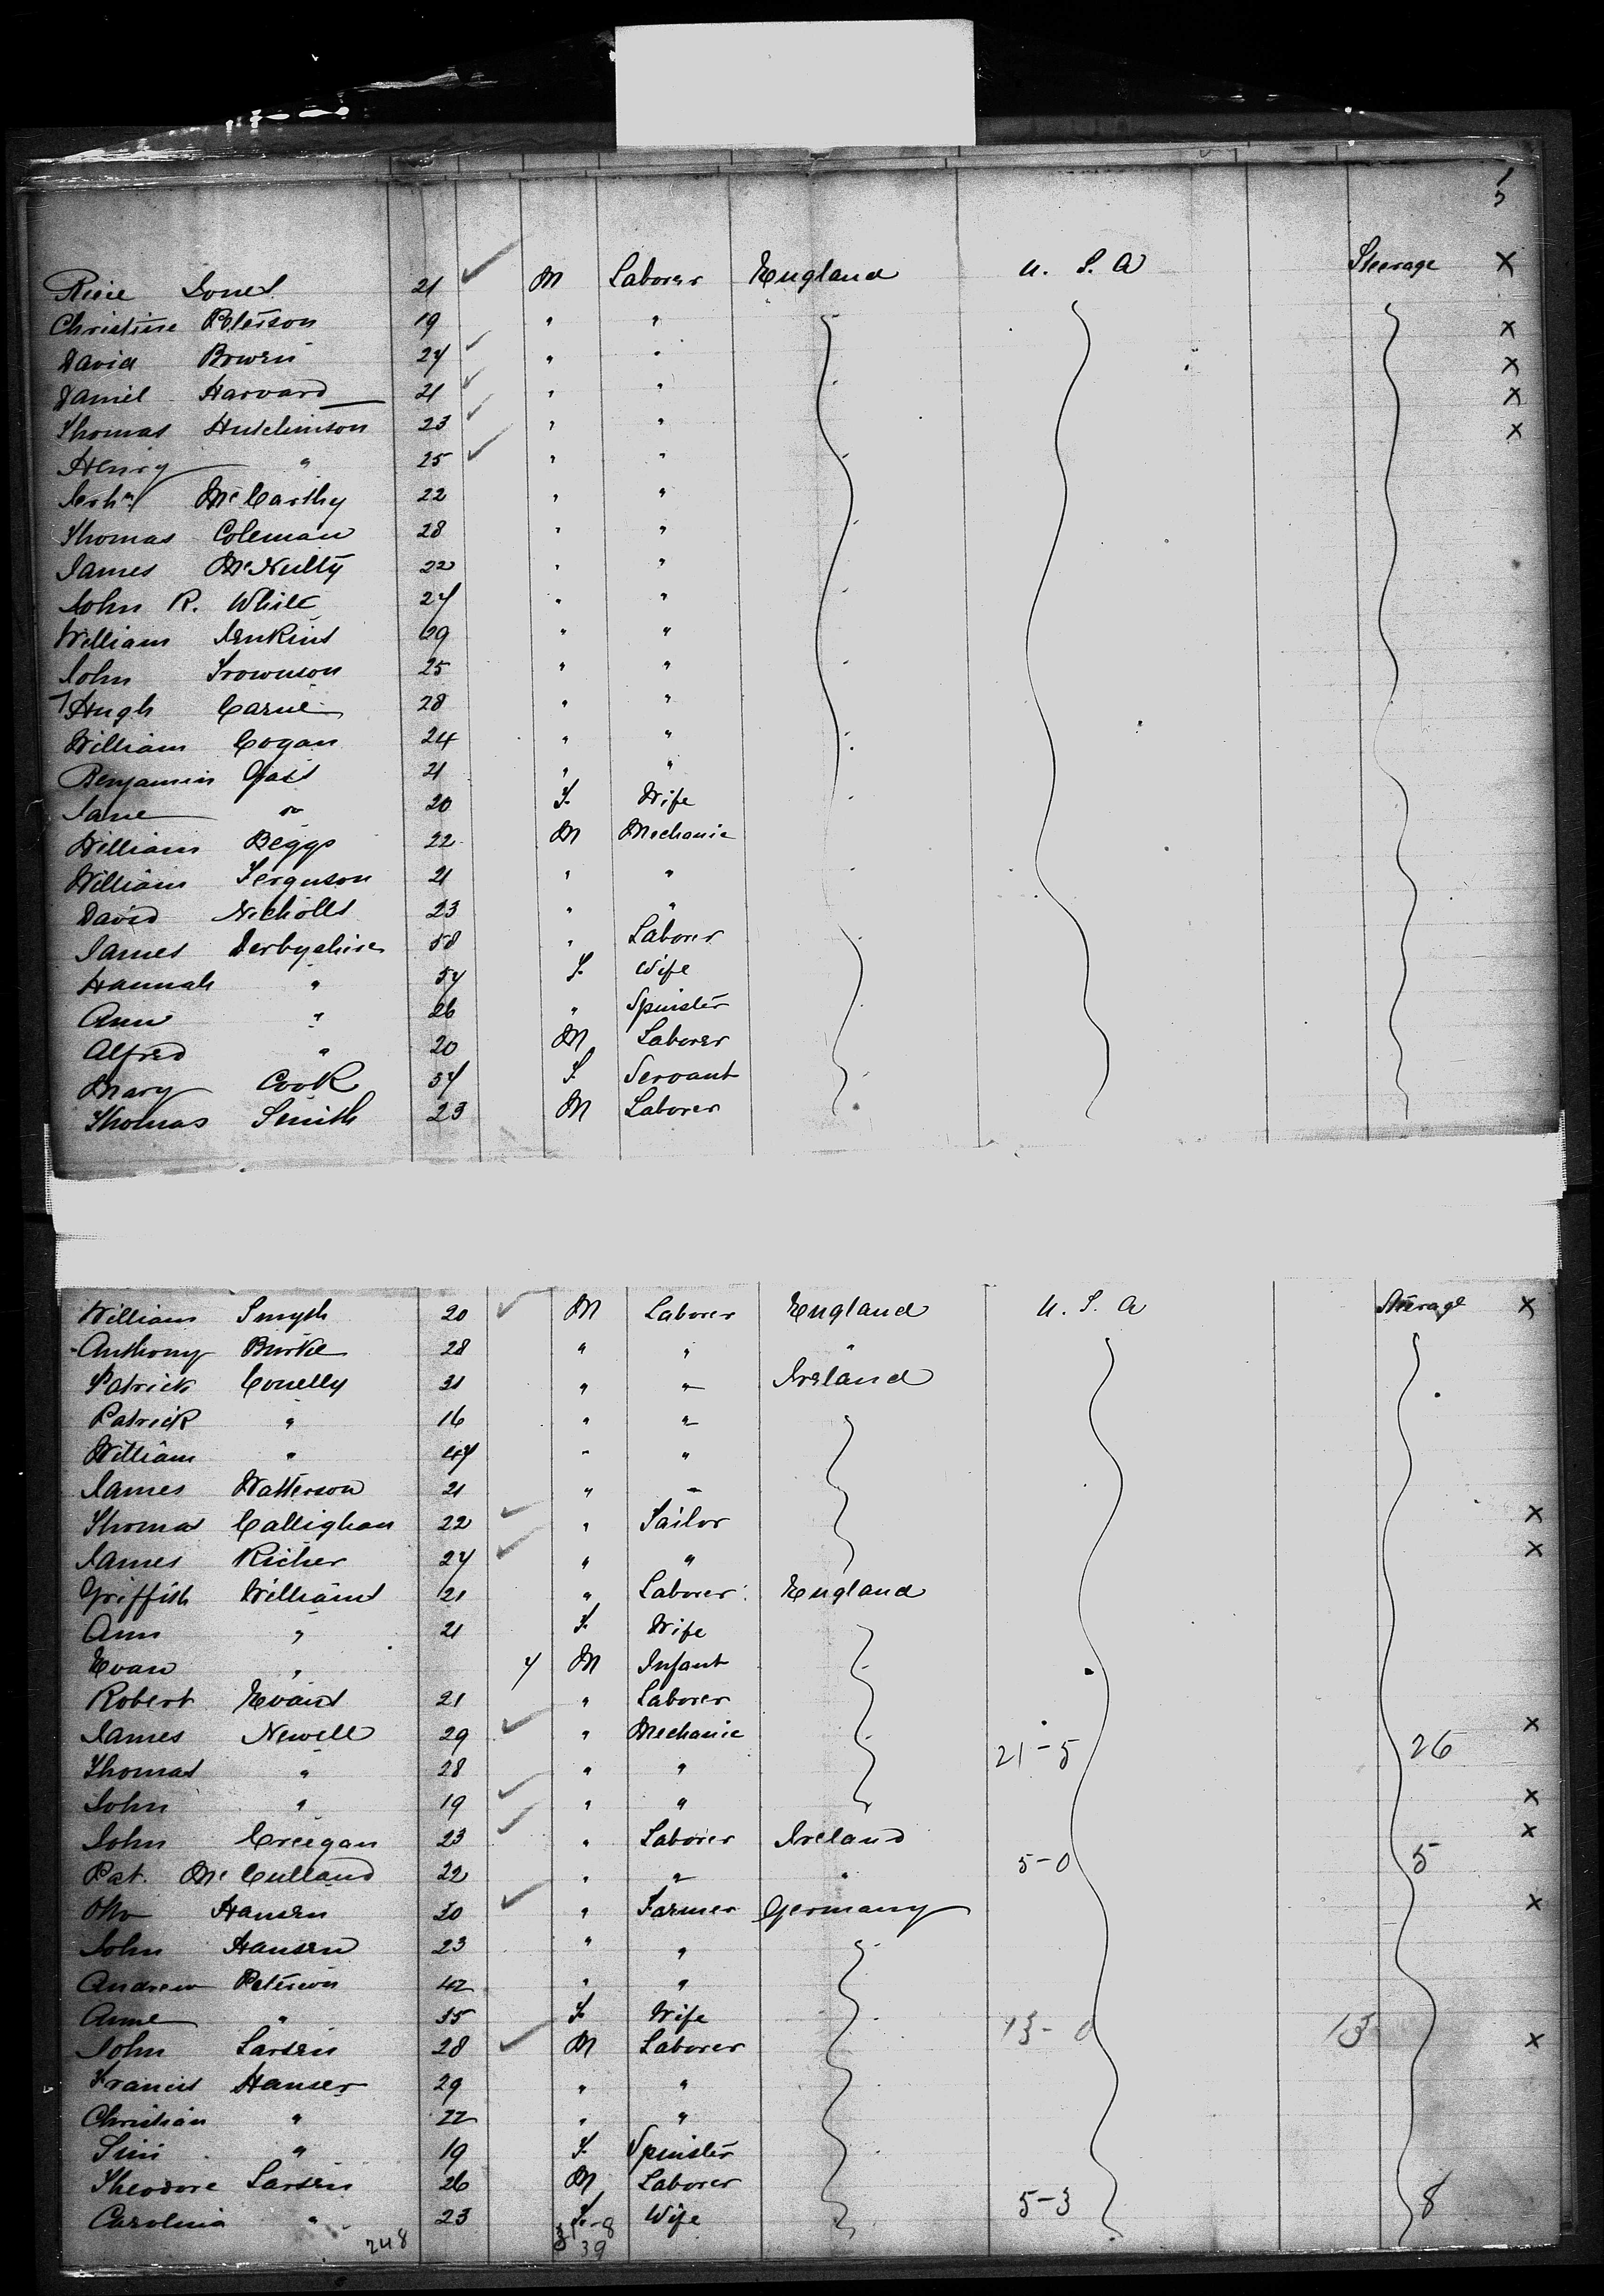 Jones 21 ✓ M Laborer England U. S. A Steerage X
Christine Peterson 19 " "
David Bowen 24 ✓ " " X
Daniel Harvard 21 ✓ " " X
Thomas Hutchinson 23 ✓ " " X
Henry " 25 ✓ " " X
McCarthy 22 " "
Thomas Coleman 28 " "
James McNulty 22 " "
John R. White 24 " "
William Jenkins 29 " "
John 25 " "
Hugh 28 " "
William Cogan 24 " "
Benjamin 21 " "
Jane " 20 F. Wife
William Beggs 22 M Mechanic
William Ferguson 21 " "
David Nicholls 23 " "
James Derbyshire 58 " Laborer
Hannah " 54 F. Wife
Ann " 26 " Spinster
Alfred " 20 M Laborer
Mary Cook 54 F. Servant
Thomas Smith 23 M Laborer
William Smyth 20 ✓ M Laborer England U. S. A Steerage X
Anthony Burke 28 " " "
Patrick Conelly 31 " " Ireland
Patrick " 16 " "
William " 47 " "
James Watterson 21 " "
Thomas Callighan 22 ✓ " Tailor X
James Richer 24 ✓ " " X
Griffith Williams 21 " Laborer England
Ann " 21 F. Wife
Evan " 4 M Infant
Robert Evans 21 " Laborer
James Newell 29 ✓ " Mechanic X
21-5 26
Thomas " 28 " "
John " 19 ✓ " " X
John Creegan 23 ✓ " Laborer Ireland X
5-0 5
Pat. McCulland 22 " " "
Otto Hansen 20 ✓ " Farmer Germany X
John Hansen 23 " "
Andrew Peterson 42 " "
Anne " 35 F. Wife 13-0 13
John Larsen 28 ✓ M Laborer X
Francis Hanser 29 " "
Christian " 22 " "
" 19 F. Spinster
Theodore Larsen 26 M Laborer
5-3 8
Carolina " 23 F. Wife
248 -8
39